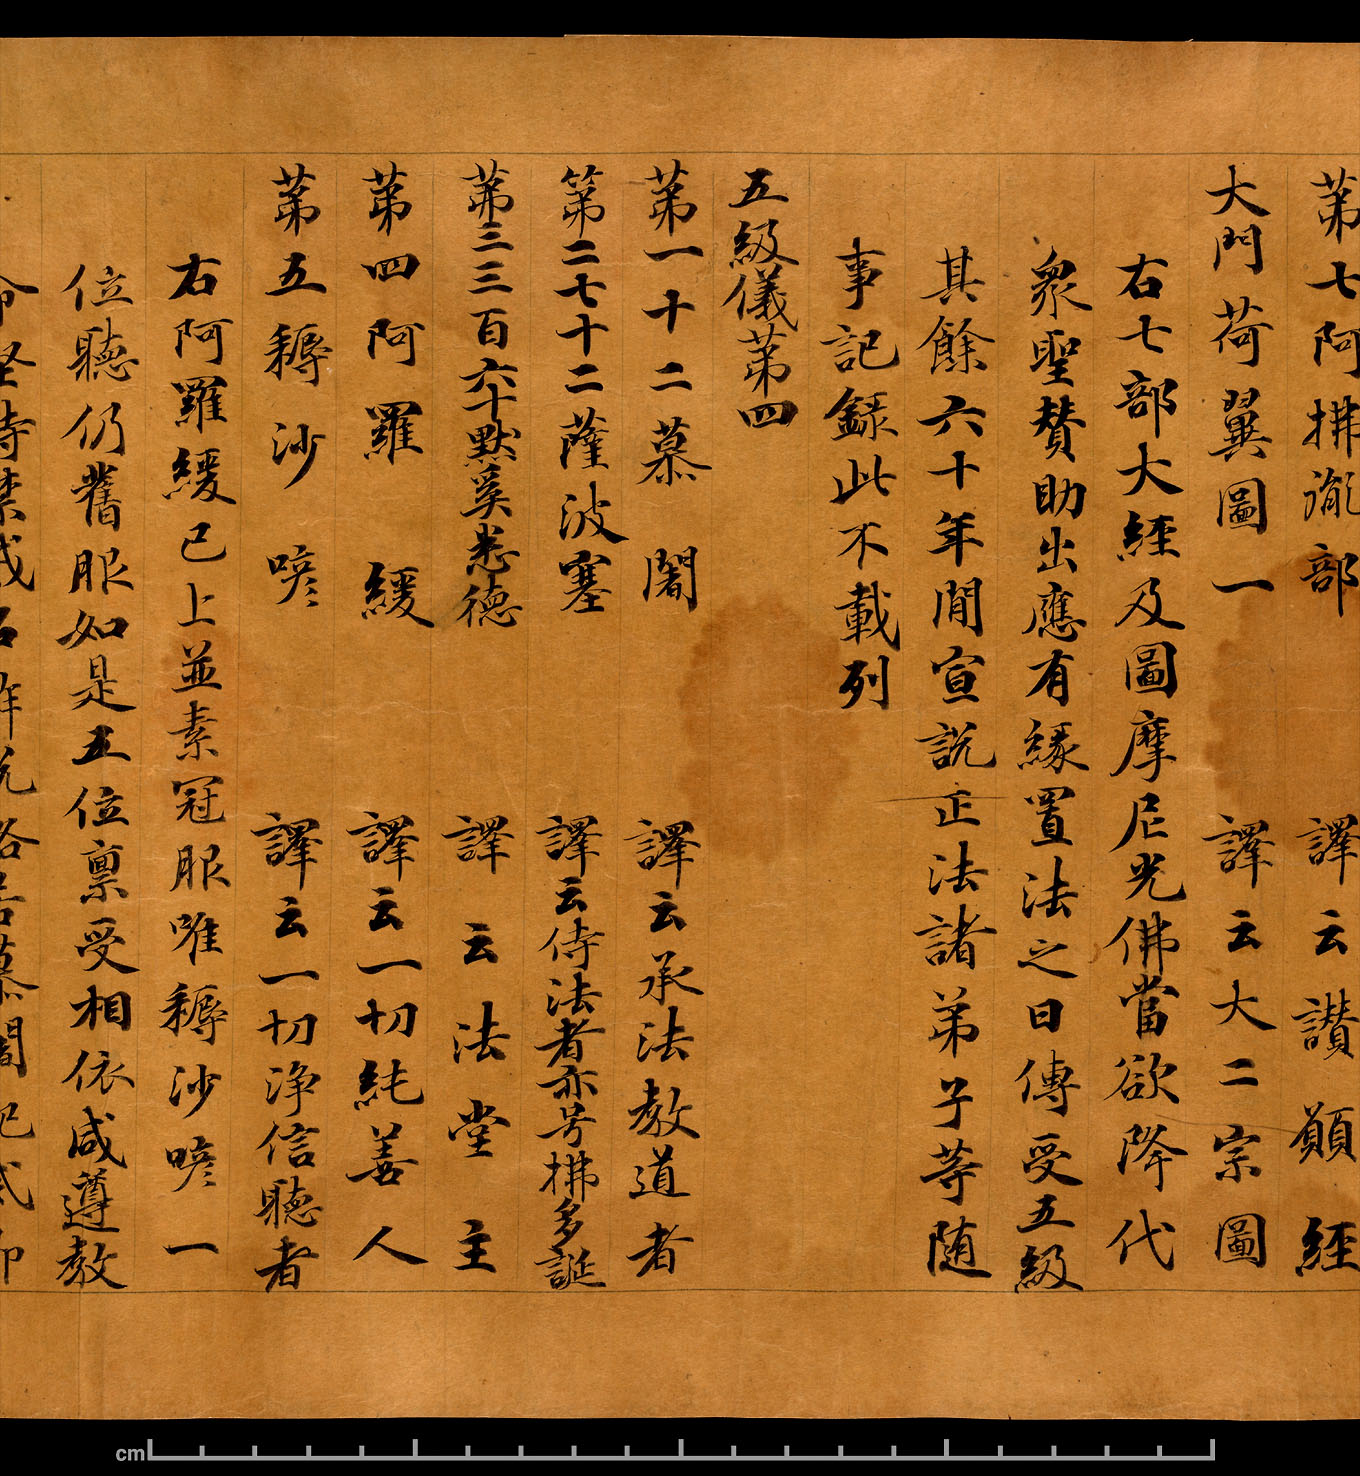 第七阿拂胤部 譯云讃願經
大門荷翼圖一 譯云大二宗圖
右七部大經及圖摩尼光佛當欲降代
衆聖賛助出應有緣置法之日傳受五級
其餘六十年間宣説正法諸弟子等随
事記録此不載列
五級儀第四
第一十二慕闍 譯云承法教道者
第二七十二薩波塞 譯云侍法者亦号拂多誕
第三三百六十默奚悉德 譯云法堂主
第四阿羅緩 譯云一切純善人
第五耨沙喭 譯云一切浄信聽者
右阿羅緩已上並素冠服唯耨沙喭一
位聽仍舊服如是五位禀受相依咸遵教
命堅持禁戒名解脱路若慕闍犯戒即